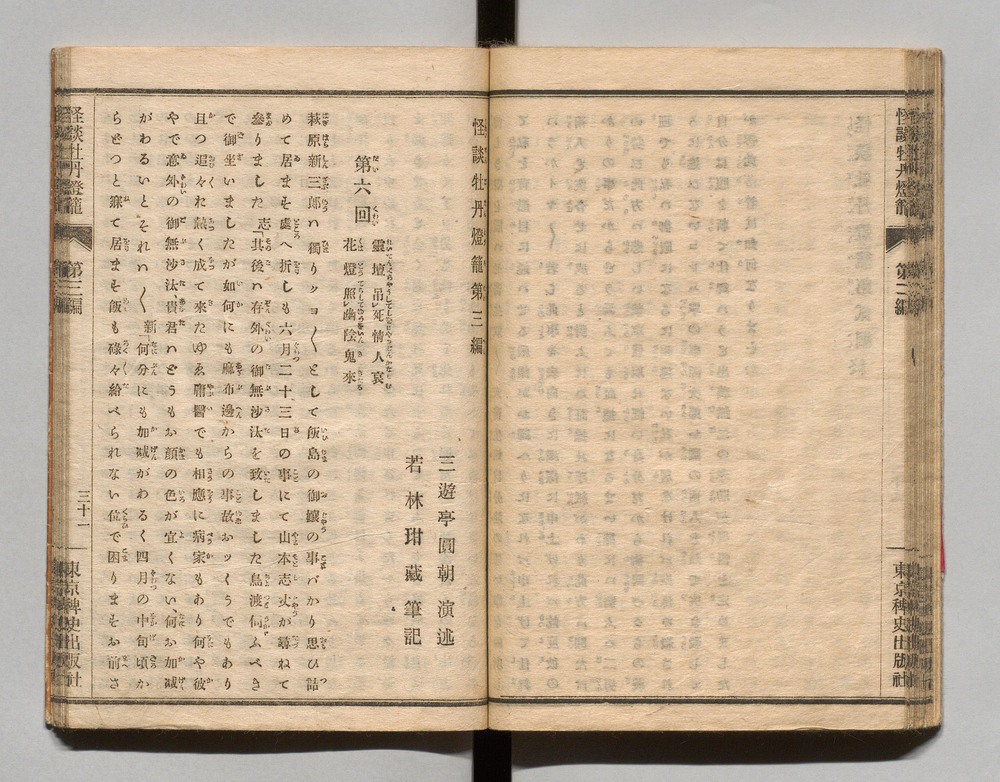 怪談牡丹燈籠
第二編
東京稗史出版社
怪談牡丹燈籠第三編
三遊亭圓朝 演述
若林玵藏 筆記
第六回
靈壇吊死情人哀
花燈照幽陰鬼來
萩原新三郎ハ獨りクヨ〱として飯島の御孃の事バかり思ひ詰
めて居ます處へ折しも六月二十三日の事にて山本志丈が尋ねて
參りました志「其後ハ存外の御無沙汰を致しました鳥渡伺ふべき
で御坐いましたが如何にも麻布邊からの事故おッくうでもあり
且つ追々お熱く成て來たゆゑ藪醫でも相應に病家もあり何や彼
やで意外の御無沙汰貴君ハどうもお顏の色が宜くない、何お加减
がわるいとそれハ〱新「何分にも加减がわるく四月の中旬頃か
らどつと寐て居ます飯も碌々給べられない位で困りますお前さ
怪談牡丹燈籠
第三編
三十一
東京稗史出版社